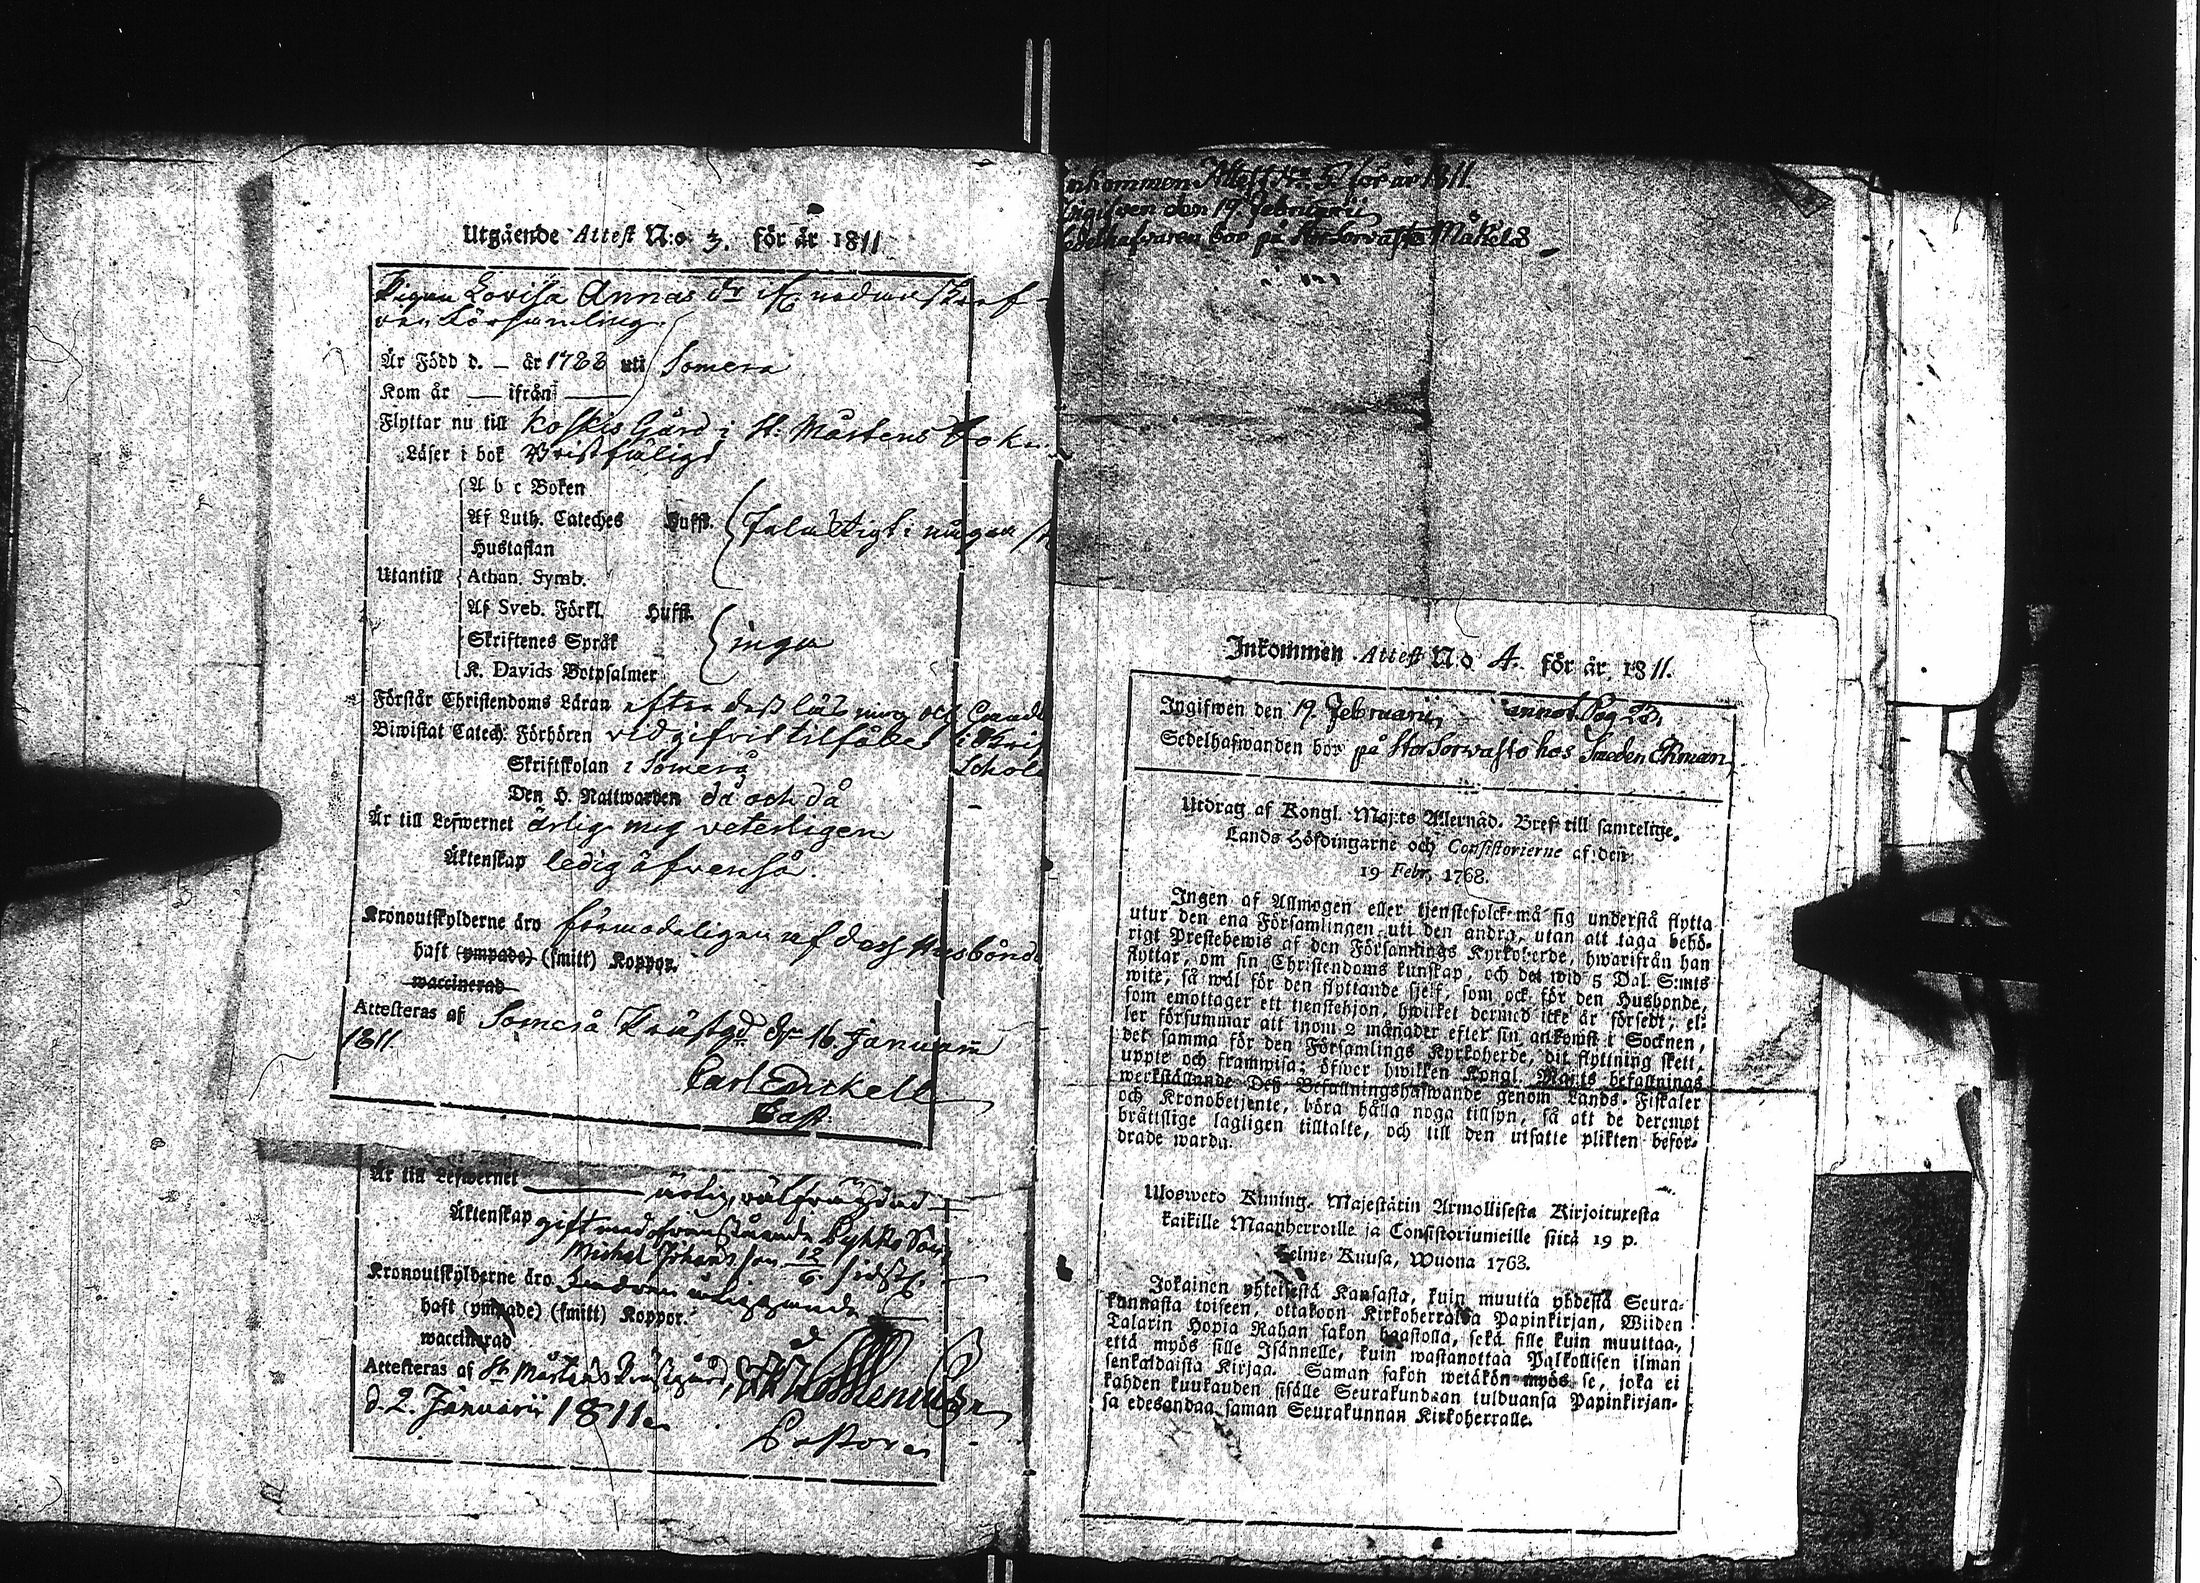 Utgående Attest N:o 3. för år 1811
Pigan Lovisa Annas dr
Församling.
Är Född d. — år 1788 uti Somero
Kom år — ifrån —
Flyttar nu till Koskis Gård i St. Mårtens Sokn.
Läser i bok Bristfäligt
A b c Boken
Af Luth. Cateches Hufst.
Hustaflan
Utantill Athan. Symb.
Af Sveb. Förkl. Hufst.
Skriftenes Språk inga
K. Davids Botpsalmer
Förstår Christendoms Läran efter dess läsning och
Biwistat Catech. Förhören vid gifvet tilfälle
Skriftskolan i Somero
Den H. Nattwarden då och då
Är till Lefwernet ärlig mig veterligen
Äktenskap ledig äfvenså.
Kronoutskylderne äro förmodeligen af dess Husbonde
haft (ympade) (smitt) Koppor.
waccinerad
Attesteras af Somero Prästgd den 16 Januarii
1811
Carl Enckell
Past.
Är till Lefwernet ärlig,
Äktenskap gift med
Michel Johans son 12/6
Kronoutskylderne äro
haft (ympade) (smitt) Koppor.
waccinerad
Attesteras af St Mårtens Prästgård,
d. 2. Januarii 1811.
Pastor
Inkommen Attest No 3. för år 1811.
Ingifwen den 19. Februarii
Sedelhafvaren bor på Stor Sorvasto Mäkelä
Inkommen Attest N:o 4. för år 1811.
Ingifwen den 19. Februarii annot. Pag 23.
Sedelhafwanden bor på Stor Sorwasto hos Smeden Ekman.
Utdrag af Kongl. Maj:ts Allernåd. Bref till samtelige
Lands Höfdingarne och Consistorierne af den
19 Febr. 1768.
Ingen af Allmogen eller tjenstefolck må sig understå flytta
utur den ena Församlingen uti den andra, utan att taga behö-
rigt Prestebewis af den Församlings Kyrkoherde, hwarifrån han
flyttar, om sin Christendoms kunskap, och det wid 5 Dal. S:mts
wite, så wäl för den flyttande sjelf, som ock för den Husbonde,
som emottager ett tienstehjon, hwilket dermed icke är försedt, el-
ler försummar att inom 2 månader efter sin ankomst i Socknen,
det samma för den Församlings Kyrkoherde, dit flyttning skett,
uppte och framwisa; öfwer hwilken Kongl. Maj:ts befallnings
werkställande Dess Befallningshafwande genom Lands-Fiskaler
och Kronobetjente, böra hålla noga tillsyn, så att de deremot
bråttslige lagligen tilltalte, och till den utsatte plikten befor-
drade warda.
Ulosweto Kuning. Majestätin Armollisesta Kirjoituxesta
kaikille Maanherroille ja Consistoriumeille siitä 19 p.
Helme-Kuusa, Wuona 1768.
Jokainen yhteisestä Kansasta, kuin muutta yhdestä Seura-
kunnasta toiseen, ottakoon Kirkoherralda Papinkirjan, Wiiden
Talarin Hopia Rahan sakon haastolla, sekä sille kuin muuttaa,
että myös sille Isännelle, kuin wastanottaa Palkollisen ilman
senkaldaista Kirjaa. Saman sakon wetäkön myös se, joka ei
kahden kuukauden sisälle Seurakundaan tulduansa Papinkirjan-
sa edesandaa saman Seurakunnan Kirkoherralle.